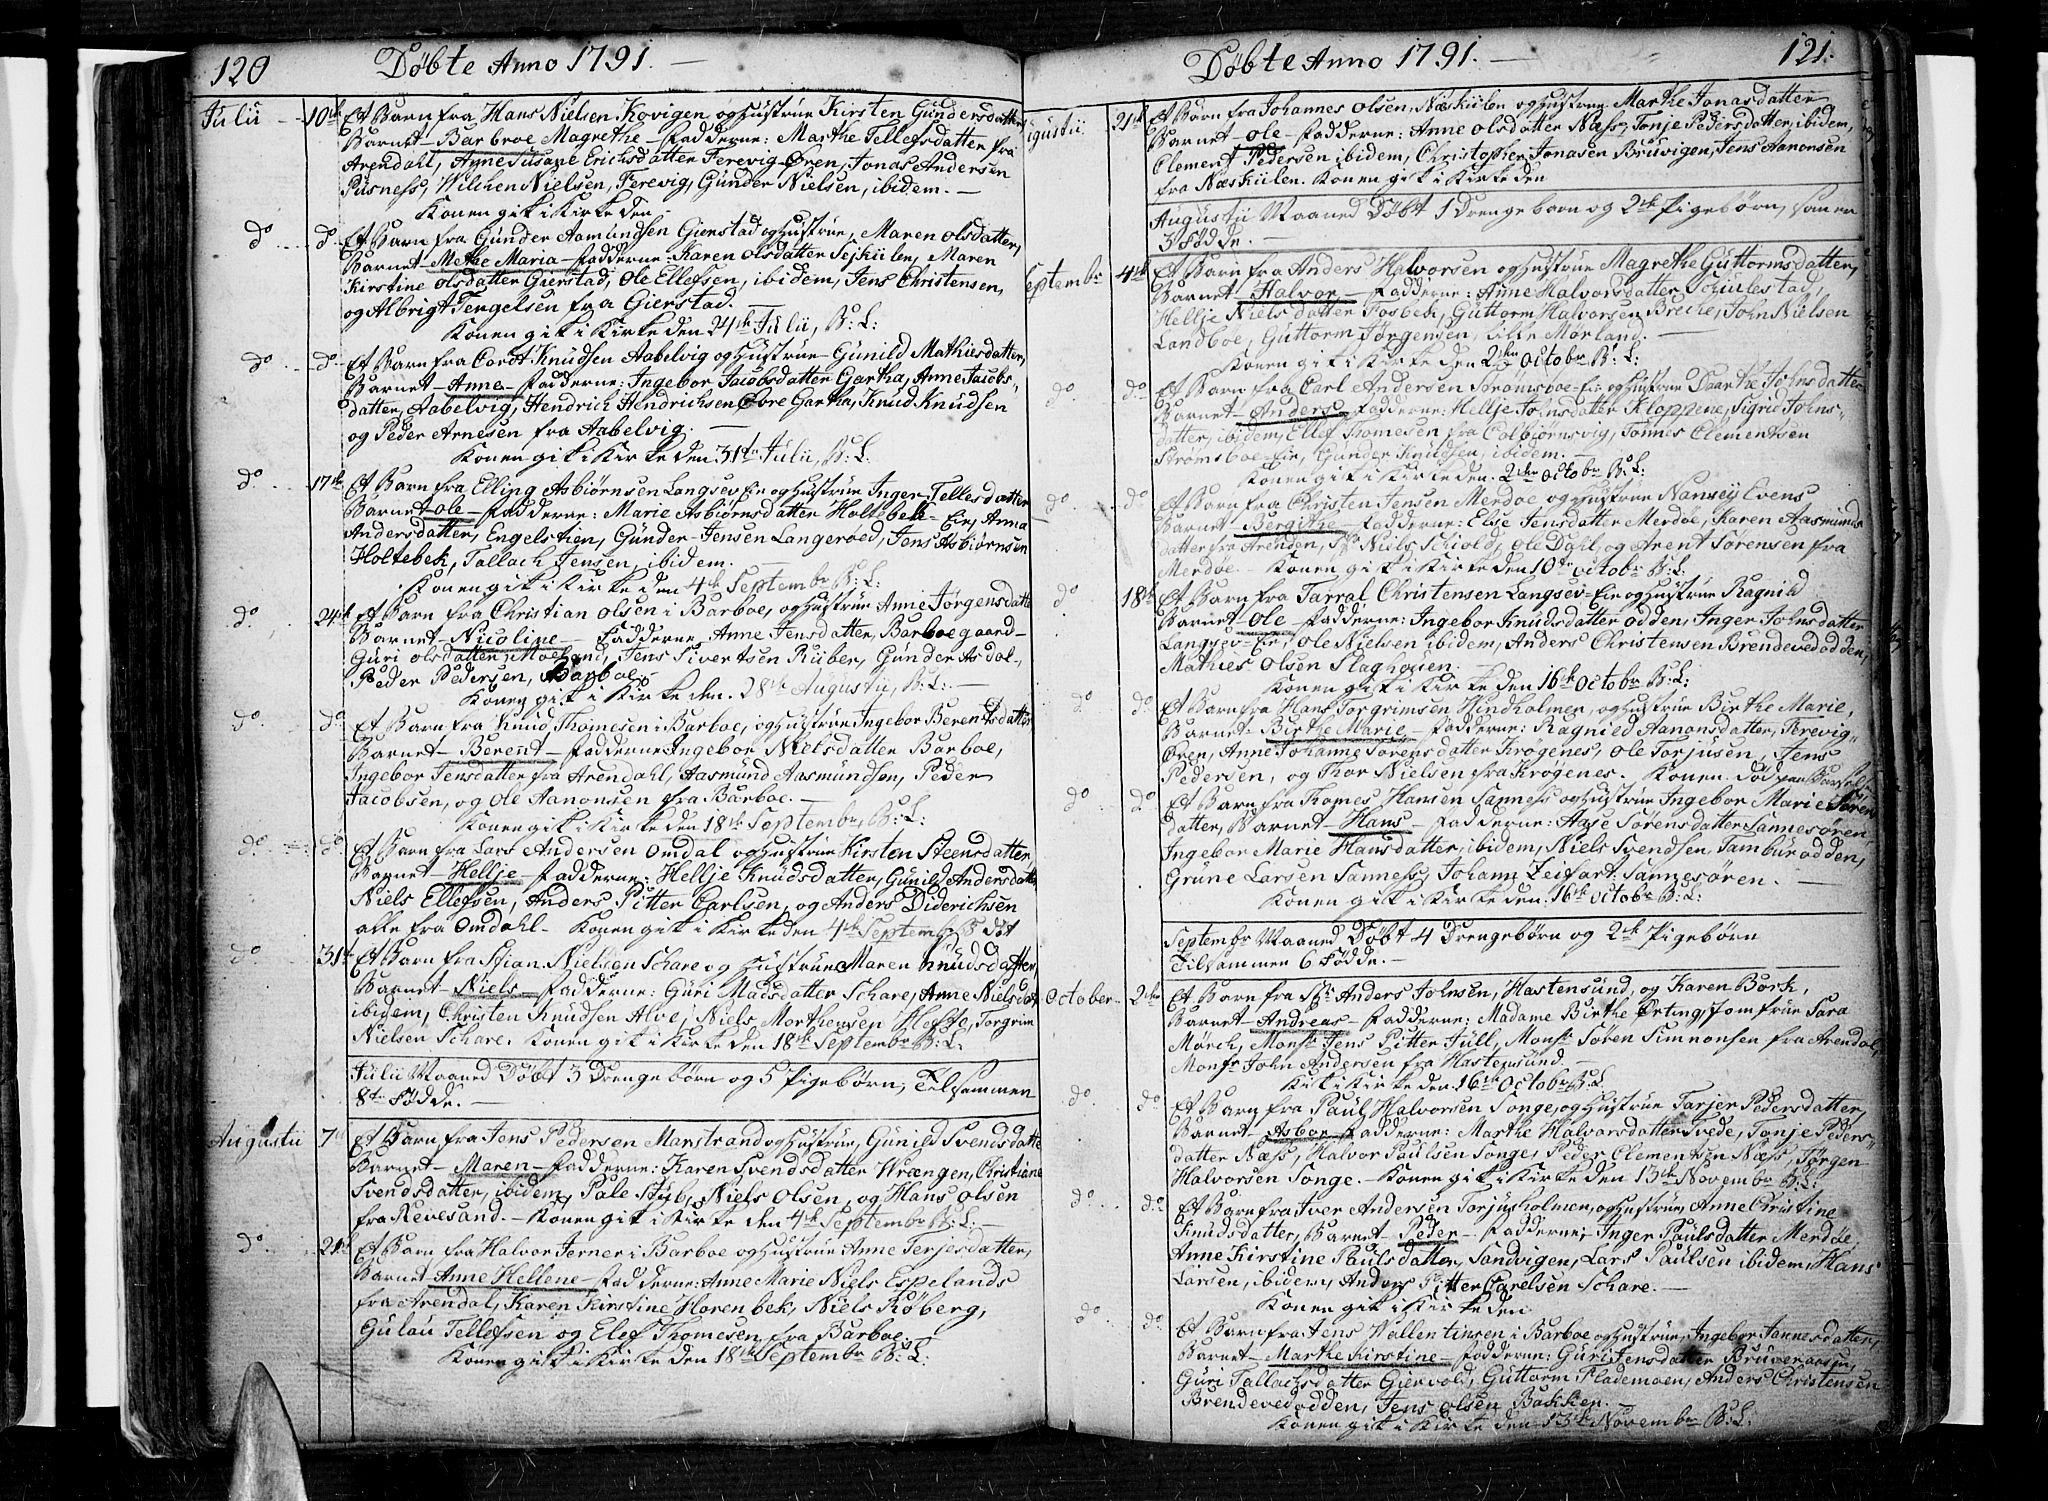 120 Døbte Anno 1791. —
Julii 10de Et Barn fra Hans Nielsen Kovigen og hustrue Kirsten Gundersdatter,
Barnet — Barbroe Magrethe — Fadderne: Marthe Tellefsdatter fra
Arendahl, Agne Susane Erichsdatter Ferevig-Øren, Jonas Andersen
Pusness, Wilchen Nielsen, Ferevig, Gunder Nielsen, ibidem. —
Konen gik i Kirke den
do. do. Et Barn fra Gunder Aamundsen Gierstad og hustrue, Maren Olsdatter,
Barnet — Methe Maria — Fadderne: Karen Olsdatter Sejkiilen, Maren
Kirstine Olsdatter Gierstad, Ole Ellefsen, ibidem, Jens Christensen,
og Albrigt Tengelsen fra Gierstad. —
Konen gik i Kirke den 24de Julii, B: L:
do. do. Et Barn fra Cordt Knudsen Aabelvig og hustrue — Gunild Mathiesdatter,
Barnet — Anne — Fadderne: Ingebor Jacobsdatter Gartha, Anne Jacobs-
datter, Aabelvig, Hendrich Hendrichsen Øvre Gartha, Knud Knudsen
og Peder Arnesen fra Aabelvig. —
Konen gik i Kirke den 31te Julii, B: L:
do 17de Et Barn fra Elling Asbiørnsen Langsev Eie og hustrue Inger Tellesdatter
Barnet — Ole — Fadderne: Marie Asbiørnsdatter Holtebek-Eie, Anna
Andersdatter, Engelstien, Gunder Jensen Langerøed, Jens Asbiørnsen
Holtebek, Tallach Jensen, ibidem. —
Konen gik i Kirke den 4de Septembr B: L:
do. 24de Et Barn fra Christian Olsen i Barboe, og hustrue Anne Jørgensdatter
Barnet — Nicoline — Fadderne, Anne Jensdatter, Barboegaard —
Guri Olsdatter, Moeland, Jens Sivertsen Ruber, Gunder Asdal,
Peder Pedersen, Barboe.
Konen gik i Kirke den. 28de Augustii, B: L: —
do. do Et Barn fra Knud Thomesen i Barboe, og hustrue Ingebor Berentsdatter
Barnet — Berennt — Fadderne Ingebor Nielsdatter Barboe,
Ingebor Jensdatter fra Arendahl, Aasmund Aasmundsen, Peder
Jacobsen, og Ole Aanonsen fra Barboe. —
Konen gik i Kirke den 18de Septembr, B: L:
do. do Et Barn fra Lars Andersen Omdal og hustrue Kirsten Steensdatter
Barnet — Hellje — Fadderne: Hellje Knudsdatter, Gunild Andersdatter
Niels Ellefsen, Anders Pitter Carlsen, og Anders Diderichsen
alle fra Omdahl — Konen gik i Kirke den 4de Septembr
do 31te Et Barn fra Stian Nielsen Schare og hustrue Maren Knudsdatter,
Barnet — Niels — Fadderne: Guri Madsdatter Schare, Anne Nielsdat
ibidem, Christen Knudsen Alve, Niels Morthensen Hefte, Torgrim
Nielsen Schare. Konen gik i Kirke den 18de Septembr B: L:
Julii Maaned Døbt 3 Drengebørn og 5 Pigebørn, Tilsammen
8te Fødde. —
Augustii 7de Et Barn fra Jens Pedersen Marstrand og hustrue, Gunild Svendsdatter
Barnet — Maren — Fadderne: Karen Svendsdatter Wrængen, Christiane
Svendsdatter, ibidem, Pale Stub, Niels Olsen, og Hans Olsen
fra Revesand. — Konen gik i Kirke den 4de Septembr B: L: —
do. 21de Et Barn fra Halvor Jerner i Barboe og hustrue Anne Terjesdatter,
Barnet — Anne Hellene — Fadderne: Anne Marie Niels Espelands
fra Arendal, Karen Kirstine Horenbek, Niels Røberg,
Gulau Tellefsen og Elef Thomesen fra Barboe.
Konen gik i Kirke den 18de Septembr B: L:
Døbte Anno 1791. — 121.
Augustii 21de Et Barn fra Johannes Olsen, Næskiilen og hustrue Marthe Jonasdatter
Barnet — Ole — Fadderne: Anne Olsdatter Næss, Tonje Pedersdatter, ibidem,
Clement Pedersen ibidem, Christopher Jonasen Bruvigen, Jens Aanonsen
fra Næskiilen. Konen gik i Kirke den
Augustii Maaned Døbt 1 Drengebarn og 2de Pigebørn, som er
3 Fødde. —
Septembr 4de Et Barn fra Anders Halvorsen og hustrue Magrethe Guttormsdatter,
Barnet — Halvor — Fadderne: Anne Halvorsdatter, Schulestad,
Hellje Nielsdatter Fosbek, Guttorm Halvorsen Breche, John Nielsen
Landboe, Guttorm Jørgensen, Lille Mørland. —
Konen gik i Kirke den 2den Octobr B: L:
do. do. Et Barn fra Carl Andersen Strømsboe-Eie og hustrue Daarthe Johnsdatter
Barnet — Anders — Fadderne: Hellje Johnsdatter Kloppene, Sigrid Johns-
datter, ibidem, Ellef Thomesen fra Colbiørnsvig, Tønnes Clementsen
Strømsboe-Eie, Gunder Knudsen, ibidem. —
Konen gik i Kirke den. 2den Octobr B: L:
do. do. Et Barn fra Christen Jensen Merdøe og hustrue Nansey Evens
Barnet — Bergithe — Fadderne: Elsje Jensdatter Merdøe, Karen Aasmunds
datter fra Arenden, Sr Niels Schiold, Ole Dahl, og Arent Sørensen fra
Merdøe — Konen gik i Kirke den 10de Octobr B: L:
do. 18de Et Barn fra Tarral Christensen Langsev-Eie og hustrue Ragnild
Barnet — Ole — Fadderne: Ingebor Knudsdatter Odden, Inger Johnsdatter
Langsev-Eie, Ole Nielsen ibidem, Anders Christensen Brendevedodden,
Mathies Olsen Slaghouen. —
Konen gik i Kirke den 16de Octobr B: L:
do. do. Et Barn fra Hans Torgrimsen Hindholmen, og hustrue Birthe Marie,
Barnet — Birthe Marie — Fadderne: Ragnied Aanonsdatter, Ferevig-
Øren, Anne Johanne Sørensdatter Krogenes, Ole Torjusen, Jens
Pedersen, og Thor Nielsen fra Krøgenes. Konen død paa Barsel.
do. do. Et Barn fra Thomes Hansen Sanness og hustrue Ingebor Marie Søren
datter, Barnet — Hans — Fadderne: Aase Sørensdatter Sannesøren,
Ingebor Marie Hansdatter, ibidem, Niels Svendsen, Tamburodden,
Grune Larsen Sanness, Johann Zeifart: Sannesøren. —
Konen gik i Kirke den 16de Octobr B: L:
Septembr Maaned Døbt 4 Drengebørn og 2de Pigebørn
Tilsammen 6 Fødde. —
October 2den Et Barn, fra Sr Anders Johnsen, Hastensund, og Karen Bork,
Barnet — Andreas — Fadderne: Madame Birthe Ørting, Jomfrue Sara
Mørch, Monsr Jens Pitter Jull, Monsr Søren Simmonsen fra Arendal,
Monsr John Andersen fra Hastensund. —
Gik i Kirke den. 16de Octobr B: L
do. do. Et Barn fra Paul Halvorsen Songe, og hustrue Tarjer Pedersdatter,
Barnet — Asboe — Fadderne: Marthe Halvorsdatter Svede, Tonje Peders-
datter Næss, Halvor Paulsen Songe, Peder Clementzøn Næss, Jørgen
Halvorsen Songe. — Konen gik i Kirke den 13de Novembr B: L:
do. do. Et Barn fra Iver Andersen Torjusholmen, og hustrue, Anne Christine
Knudsdatter, Barnet — Peder — Fadderne, Inger Paulsdatter Merdøe,
Anne Kirstine Paulsdatter, Sandvigen, Lars Paulsen ibidem, Hans
Larsen, ibidem, Anders Pitter Carelsen Schare. —
Konen gik i Kirke den
do. do. Et Barn fra Jens Wallentinsen i Barboe og hustrue, Ingebor Jannesdatter,
Barnet — Marthe Kirstine — Fadderne: Guri Jensdatter Bruveraasen,
Guri Tallachsdatter Giervold, Guttorm Flademoen, Anders Christensen
Brendevedodden, Jens Olsen Bakken. —
Konen gik i Kirke den 13de Novembr B: L: